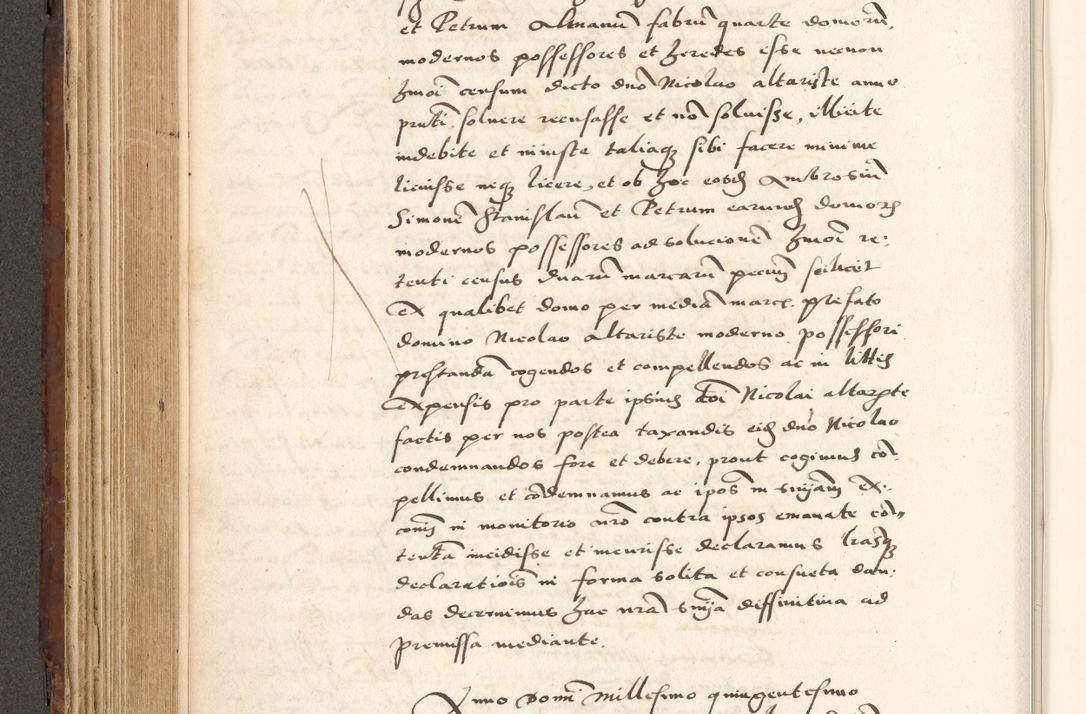 et Petrum Altmanū fabrū quarte domorū,
modernos possessores et heredes esse necnon
hmōi censum dicto dnō Nicolao altariste anno
pnti solvere recusasse et nō soluisse, illicite
indebite et iniuste taliaq sibi facere minime
licuisse neq licere, et ob hoc eosd Ambrosiū
Simonē Stanislaū et Petrum earund domor
modernos possessores ad solucionē hmōi re-
tenti census duarū marcarū pecuni scilicet
ex qualibet domo per mediā marc. prefato
domino Nicolao altariste moderno possessori
prestandā cogendos et compellendos ac in littis
expensis pro parte ipsius dni Nicolai altariste
factis per nos postea taxandis eid dnō Nicolao
condemnandos fore et debere, prout cogimus cō-
pellimus et cōdemnamus ac ipos in sniam ex-
conis in monitorio nrō contra ipsos emanate cō-
tentā incidisse et incurisse declaramus lrasq
declaratiois in forma solita et consueta dan-
das decernimus hac nrā snia diffinitiva ad
premissa mediante.
Anno Domī Millesimo quingentesimo